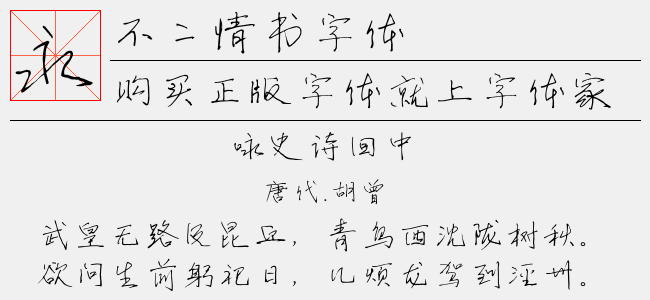 永
不二情书字体
购买正版字体就上字体家
咏史诗回中
唐代.胡曾
武皇无路及昆丘，青鸟西沈陇树秋。
欲问生前躬祀日，几烦龙驾到泾州。